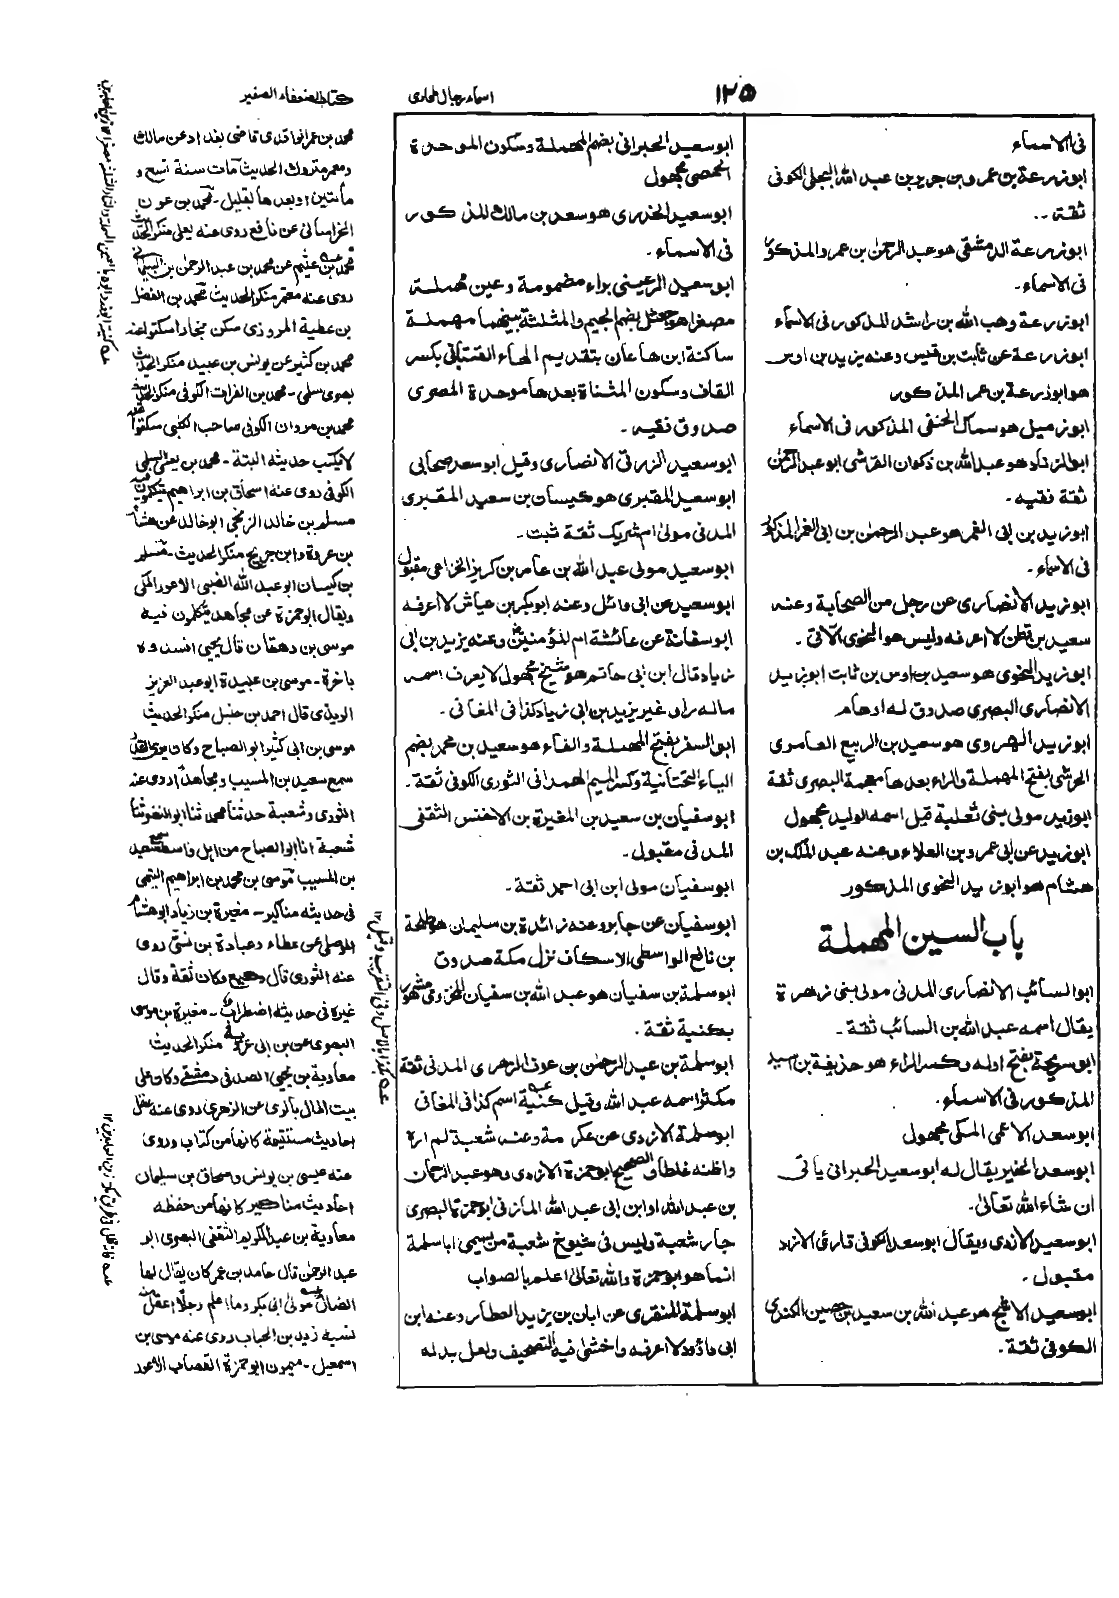 ١٢٥
اسماء رجال طحاوى
كتاب الضعفاء الصغير
فى الاسماء
ابوزرعة بن عمرو بن جرير بن عبد الله البجلى الكوفى
ثقة ..
ابوزرعة الدمشقى هو عبد الرحمٰن بن عمرو المذكور
فى الاسماء.
ابوزرعة وهب الله بن راشد المذكور فى الاسماء
ابوزرعة عن ثابت بن قيس وعنه يزيد بن اوس
هو ابوزرعة بن عمر المذكور
ابوزميل هو سماك الحنفى المذكور فى الاسماء
ابو الزناد هو عبد الله بن ذكوان القرشى ابو عبد الرحمٰن
ثقة فقيه.
ابوزيد بن ابى الغمر هو عبد الرحمٰن بن ابى الغمر المذكور
فى الاسماء.
ابوزيد الانصارى عن رجل من الصحابة وعنه
سعيد بن قطن لا اعرفه وليس هو النحوى الآتى.
ابوزيد النحوى هو سعيد بن اوس بن ثابت ابوزيد
الانصارى البصرى صدوق له اوهام
ابوزيد الهروى هو سعيد بن الربيع العامرى
الحرشى بفتح المهملة والراء بعدها معجمة البصرى ثقة
ابوزيد مولى بنى ثعلبة قيل اسمه الوليد مجهول
ابوزيد عن ابى عمرو بن العلاء وعنه عبد الملك بن
هشام هو ابوزيد النحوى المذكور
باب السين المهملة
ابو السائب الانصارى المدنى مولى بنى زهرة
يقال اسمه عبد الله بن السائب ثقة.
ابو سريحة بفتح اوله وكسر الراء هو حذيفة بن اسيد
المذكور فى الاسماء.
ابوسعد الاعمى المكى مجهول
ابوسعد الخير يقال له ابوسعيد الحبرانى ياتى
ان شاء الله تعالىٰ.
ابوسعيد الازدى ويقال ابوسعد الكوفى قارئ الازد
مقبول.
ابوسعيد الاشج هو عبد الله بن سعيد بن حصين الكندى
الكوفى ثقة.
ابوسعيد الحبرانى بضم المهملة وسكون الموحدة
الحمصى مجهول
ابوسعيد الخدرى هو سعد بن مالك المذكور
فى الاسماء.
ابوسعيد الرعينى براء مضمومة وعين مهملة
مصغرا هو جعثل بضم الجيم والمثلثة بينهما مهملة
ساكنة ابن هاعان بتقديم الهاء القتبانى بكسر
القاف وسكون المثناة بعدها موحدة المصرى
صدوق فقيه.
ابوسعيد الزرقى الانصارى وقيل ابوسعد صحابى
ابوسعيد المقبرى هو كيسان بن سعيد المقبرى
المدنى مولى ام شريك ثقة ثبت.
ابوسعيد مولى عبد الله بن عامر بن كريز الخزاعى مقبول
ابوسعيد عن ابى وائل وعنه ابوبكر بن عياش لا اعرفه
ابوسفانة عن عائشة ام المؤمنين وعنه يزيد بن ابى
زياد قال ابن ابى حاتم هو شيخ مجهول لا يعرف اسمه
ماله راو غير يزيد بن ابى زياد كذا فى المغانى.
ابو السفر بفتح المهملة والفاء هو سعيد بن محمد بضم
الياء التحتانية وكسر الميم الهمدانى الثورى الكوفى ثقة.
ابوسفيان بن سعيد بن المغيرة بن الاخنس الثقفى
المدنى مقبول.
ابوسفيان مولى ابن ابى احمد ثقة.
ابوسفيان عن جابر وعنه زائدة بن سليمان هو طلحة
بن نافع الواسطى الاسكاف نزل مكة صدوق
ابوسلمة بن سفيان هو عبد الله بن سفيان المخزومى مشهور
بكنية ثقة.
ابوسلمة بن عبد الرحمٰن بن عوف الزهرى المدنى ثقة
مكثر اسمه عبد الله وقيل كنية عه اسم كذا فى المغانى
ابوسلمة الازدى عن عكرمة وعنه شعبة لم اره
واظنه غلطا والصحيح ابوحمزة الازدى وهو عبد الرحمان
بن عبد الله او ابن ابى عبد الله المازنى ابوحمزة البصرى
جار شعبة وليس فى شيوخ شعبة من يسمى اباسلمة
انما هو ابوحمزة والله تعالىٰ اعلم بالصواب
ابوسلمة المنقرى عن ابان بن يزيد العطار وعنه ابن
ابى داؤد لا اعرفه واخشىٰ فيه التصحيف ولعل بدله
عه كذا بالاصل وفى التقريب وقيل ١٢
محمد بن عمر الواقدى قاضى بغداد عن مالك
ومعمر متروك الحديث مات سنة تسع و
مأتين او بعدها بقليل - محمد بن عون
الخراسانى عن نافع روى عنه يعلى منكر الحديث
محمد بن عثيم عن محمد بن عبد الرحمٰن بن البيلمانى
روى عنه معتمر منكر الحديث محمد بن الفضل
بن عطية المروزى سكن بخارا سكتوا عنه
محمد بن كثير عن يونس بن عبيد منكر الحديث
بصرى سلمى - محمد بن الفرات الكوفى منكر الحديث
محمد بن مروان الكوفى صاحب الكلبى سكتوا عنه
لا يكتب حديثه البتة - محمد بن يعلى السلمى
الكوفى روى عنه اسحاق بن ابراهيم يتكلمون فيه
مسلم بن خالد الزنجى ابوخالد عن هشام
بن عروة وابن جريج منكر الحديث - مسلم
بن كيسان ابو عبد الله الضبى الاعور المكى
ويقال ابوحمزة عن مجاهد يتكلمون فيه
موسى بن دهقان قال يحيى افسدوه
باخرة - موسى بن عبيدة ابو عبد العزيز
الربذى قال احمد بن حنبل منكر الحديث
موسى بن ابى كثير ابو الصباح وكان يرى القدر
سمع سعيد بن المسيب ومجاهدا روى عنه
الثورى وشعبة حدثنا محمد ثنا ابو النضر ثنا
شعبة انا ابو الصباح من اهل واسط سمع سعيد
بن المسيب موسى بن محمد بن ابراهيم التيمى
فى حديثه مناكير - مغيرة بن زياد ابوهشام
الموصلى عن عطاء وعبادة بن نسى روى
عنه الثورى قال وكيع وكان ثقة وقال
غيره فى حديثه اضطراب - مغيرة بن موسى
البصرى عن بن ابى عروبة منكر الحديث
معاوية بن يحيى الصدفى دمشقى وكان على
بيت المال بالرى عن الزهرى روى عنه هقل
احاديث مستقيمة كانها من كتاب وروى
عنه عيسى بن يونس واسحاق بن سليمان
احاديث مناكير كانها من حفظه
معاوية بن عبد الكريم الثقفى البصرى ابو
عبد الرحمٰن قال حامد بن عمر كان يقال لها
الضال مولى ابى بكر وما اعلم رجلا اعقل منه
نسبه زيد بن الحباب روى عنه موسى بن
اسمعيل - ميمون ابوحمزة القصاب الاعور